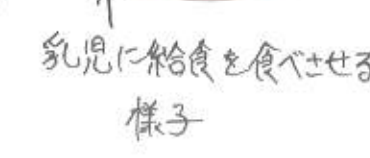 乳児に給食を食べさせる
様子